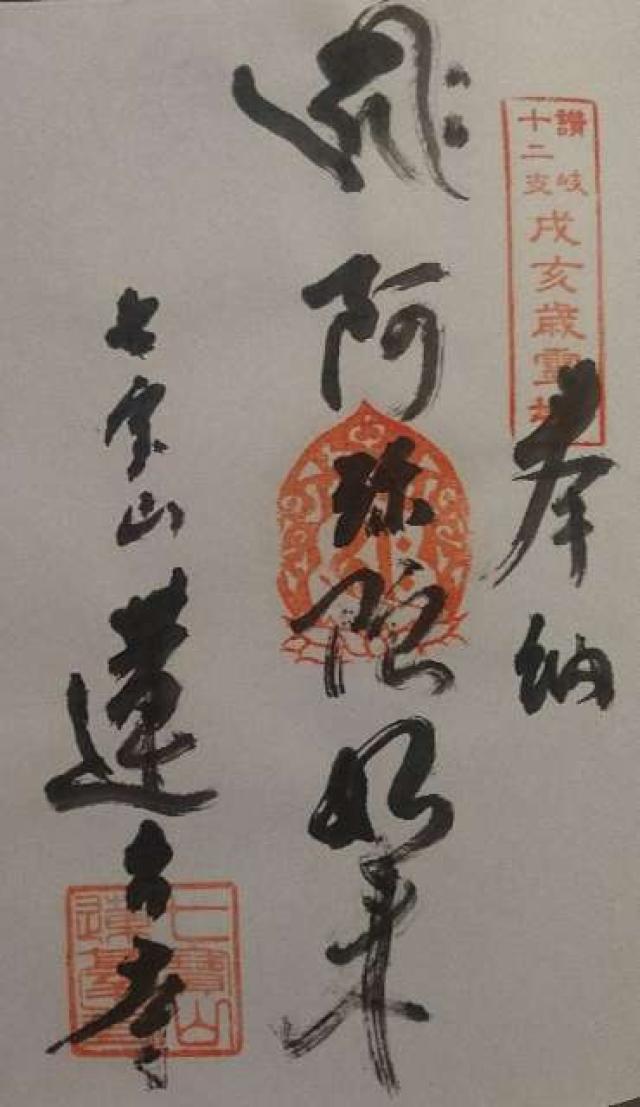 讚岐
十二支
戌亥歳霊場
奉納
阿弥陀如来
七宝山
蓮台寺
七寶山
蓮臺寺